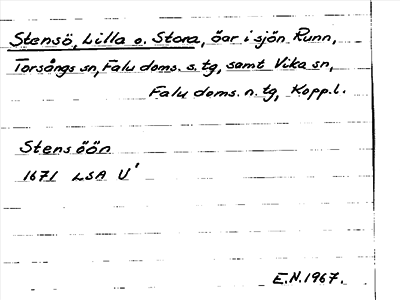 Stensö, Lilla o. Stora, öar i sjön Runn,
Torsångs sn, Falu doms. s. tg, samt Vika sn,
Falu doms. n. tg, Kopp.l.
Stensöön
1671 LSA U'
E.N. 1967.